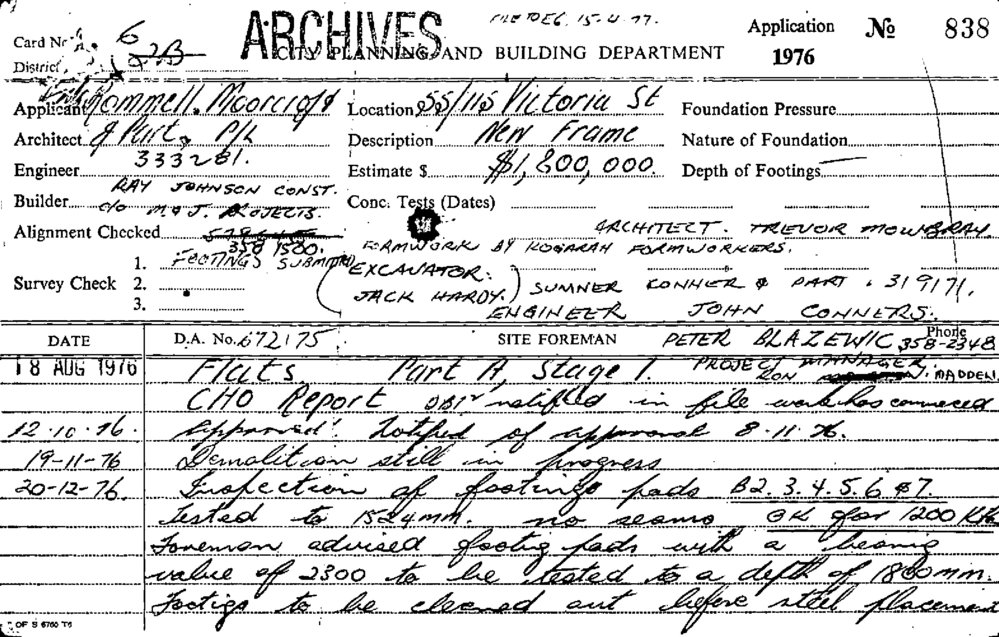 ARCHIVES
FILE TO E6. 15-4-77.
Application № 838
1976
Card No. 6
District 2B
CITY PLANNING AND BUILDING DEPARTMENT
Applicant Hammell. Moorcroft
Location 55/115 Victoria St
Foundation Pressure
Architect & Part, P/L
Description New Frame
Nature of Foundation
Engineer 333281.
Estimate $ $1,800,000.
Depth of Footings
Builder RAY JOHNSON CONST.
c/o M & J. PROJECTS.
Conc. Tests (Dates)
ARCHITECT. TREVOR MOWBRAY.
Alignment Checked
358 1500.
FORMWORK BY KOGARAH FORMWORKERS.
Survey Check 1. FOOTINGS SUBMITTED
2.
3.
(EXCAVATOR:
JACK HARDY.)
SUMNER CONNER & PART. 319171.
ENGINEER JOHN CONNERS.
DATE
D.A. No. 672/75
SITE FOREMAN PETER BLAZEWIC Phone 358-2348
18 AUG 1976 Flats Part A, Stage 1. PROJECT MANAGER RON MADDEN.
CHO Report notified in file work has commenced
12.10.76. Approved. Notified of approval 8.11.76.
19-11-76 Demolition still in progress
20-12-76. Inspection of footings pads B2.3.4.5.6.&7.
tested to 1524mm. no seams OK for 1200 KPa
Foreman advised footig pads with a bearing
value of 2300 to be tested to a depth of 1800mm.
Footigs to be cleaned out before steel placement
OF S 6760 T6